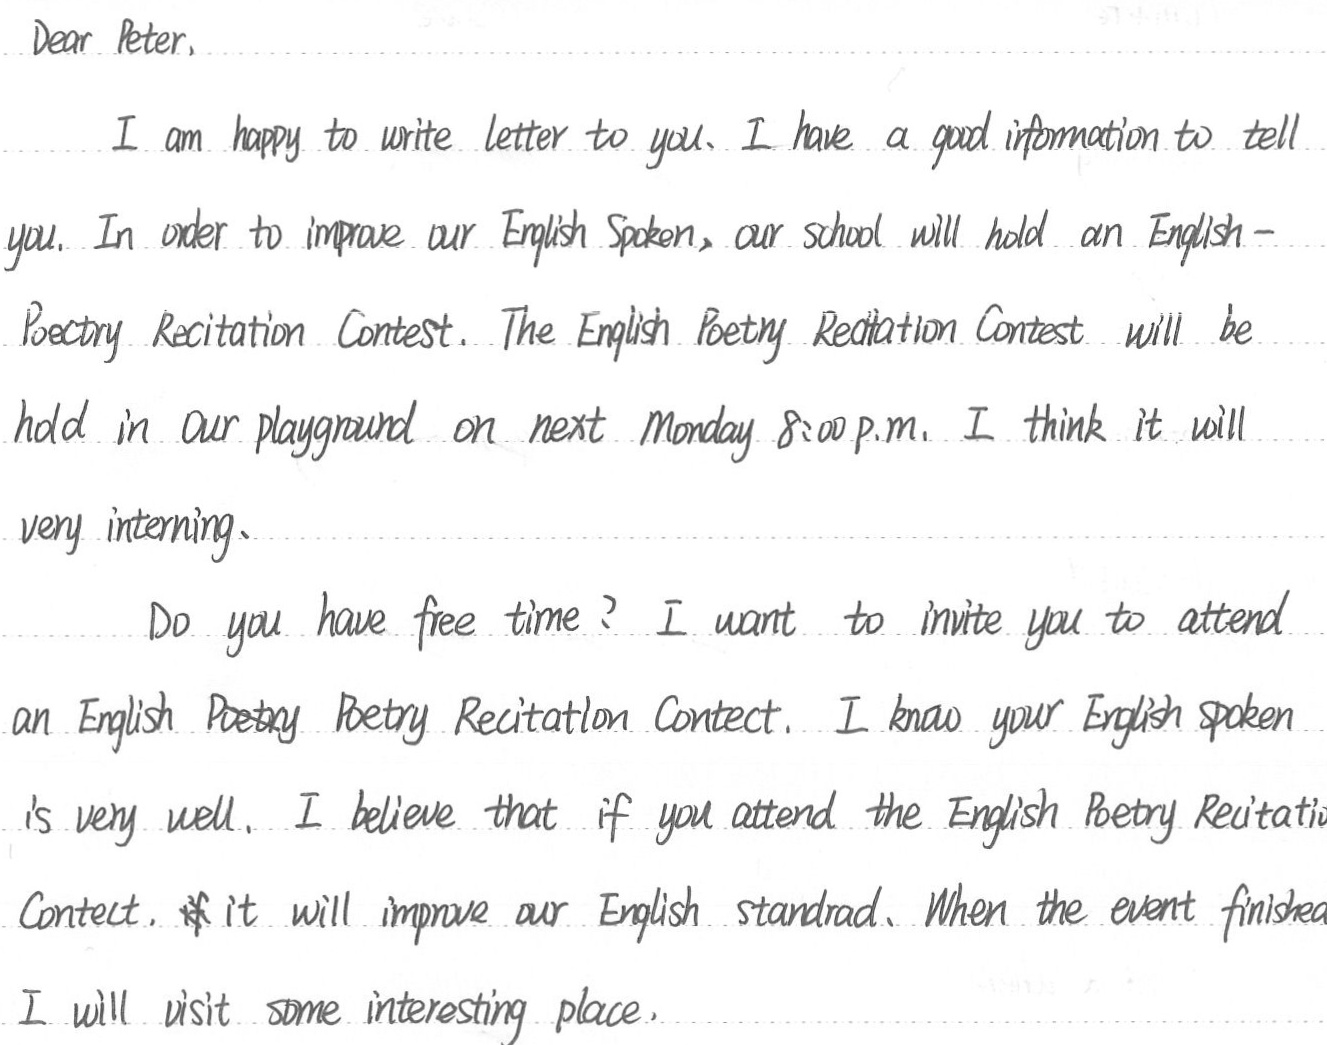 Dear Peter,
I am happy to write letter to you. I have a good information to tell
you. In order to improve our English Spoken, our school will hold an English-
Poectry Recitation Contest. The English Poetry Recitation Contest will be
hold in our playground on next Monday 8:00 p.m. I think it will
very interning.
Do you have free time? I want to invite you to attend
an English Poetry Poetry Recitation Contect. I know your English spoken
is very well. I believe that if you attend the English Poetry Recitatio
Contect. it will improve our English standrad. When the event finished
I will visit some interesting place.